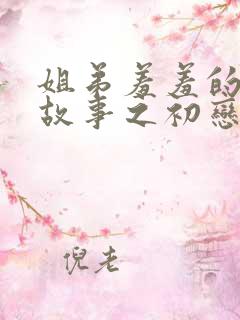 姐弟羞羞的
故事之初戀
倪老